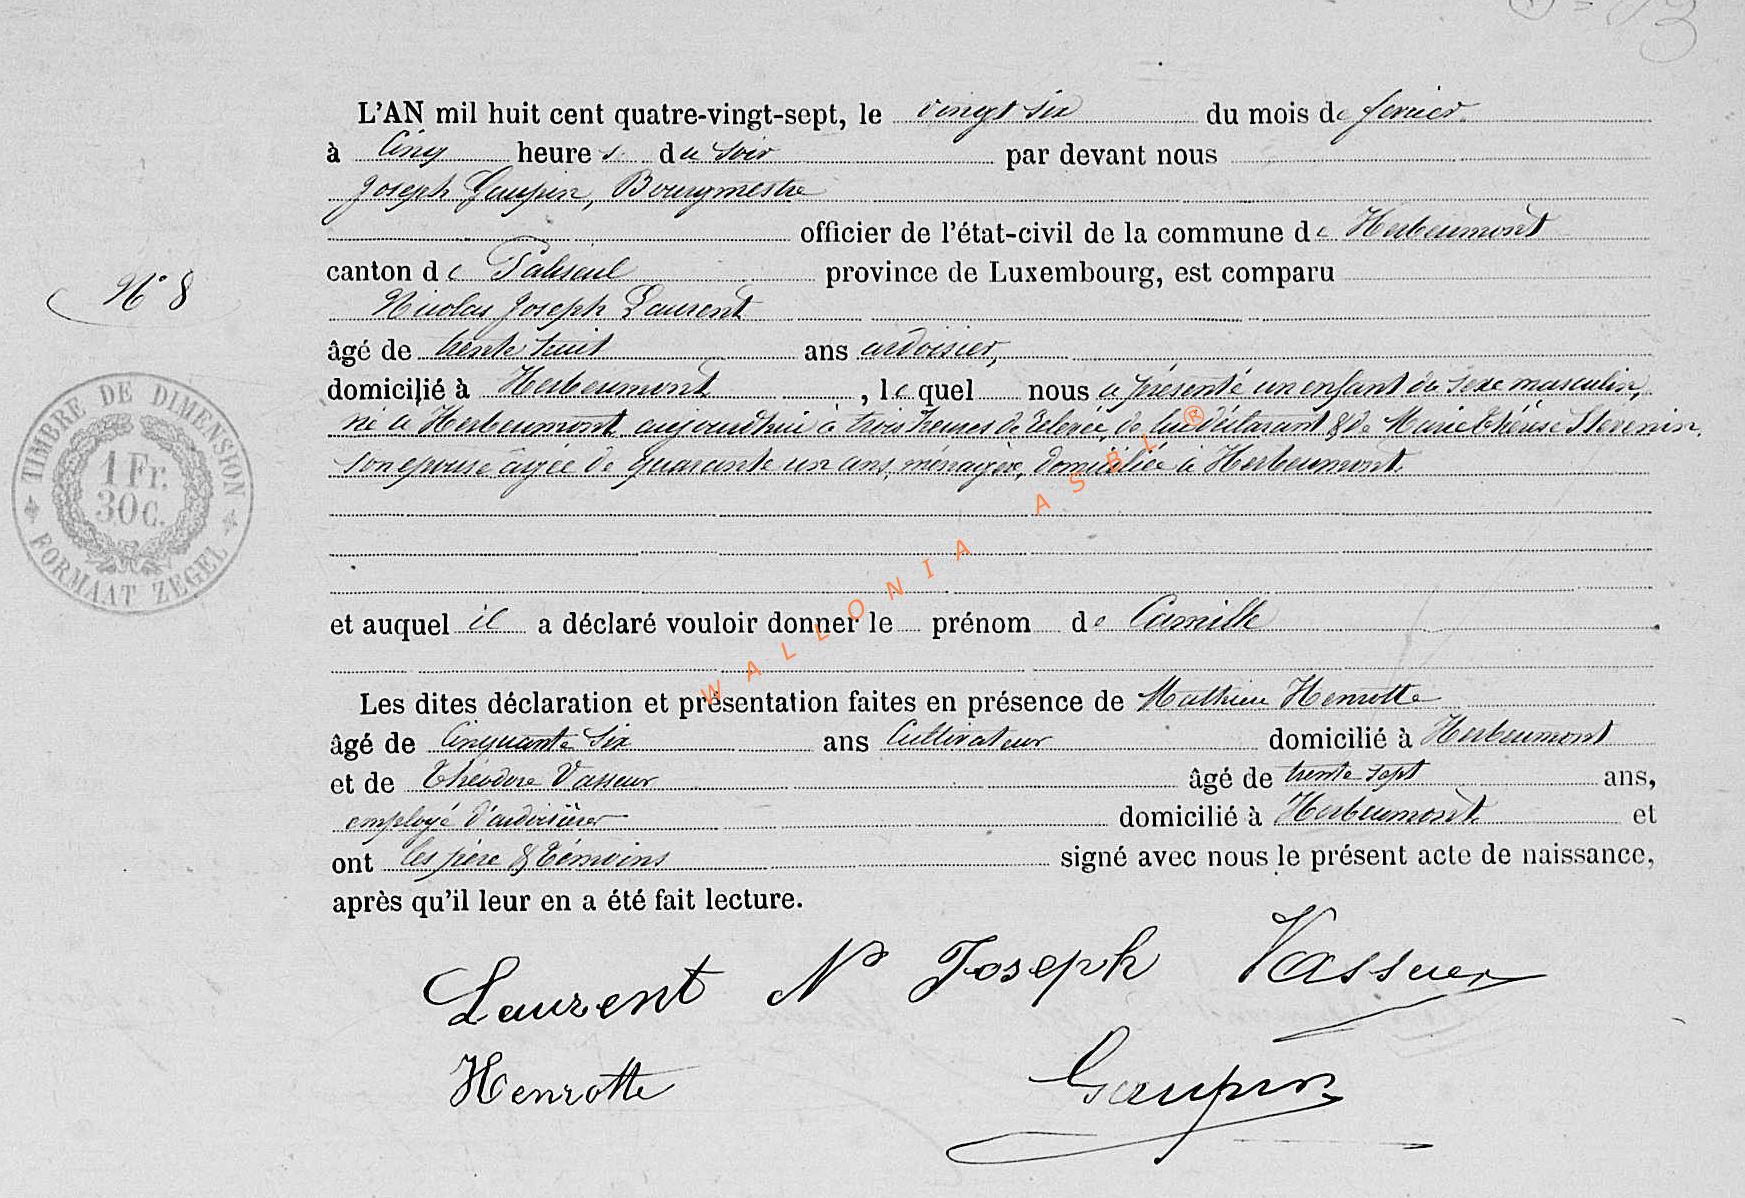 L'AN mil huit cent quatre-vingt-sept, le vingt six du mois de fevrier
à Cinq heures du soir par devant nous
Joseph Gaupin, Bourgmestre
officier de l'état-civil de la commune de Herbeumont
N° 8
canton de Paliseul province de Luxembourg, est comparu
Nicolas Joseph Laurent
âgé de trente huit ans ardoisier,
domicilié à Herbeumont, lequel nous a présenté un enfant du sexe masculin,
né à Herbeumont aujourd'hui à trois heures de relevée, de lui déclarant & de Marie Thérèse Stevenin,
son epouse âgée de quarante un ans, ménagère, domiciliée à Herbeumont.
TIMBRE DE DIMENSION
1 Fr.
30 c.
FORMAAT ZEGEL
WALLONIA ASBL ®
et auquel il a déclaré vouloir donner le prénom de Camille
Les dites déclaration et présentation faites en présence de Mathieu Henrotte
âgé de Cinquante Six ans Cultivateur domicilié à Herbeumont
et de Théodore Vasseur âgé de trente sept ans,
employé d'ardoisière domicilié à Herbeumont et
ont les père & témoins signé avec nous le présent acte de naissance,
après qu'il leur en a été fait lecture.
Laurent N Joseph Vasseur
Henrotte Gaupin